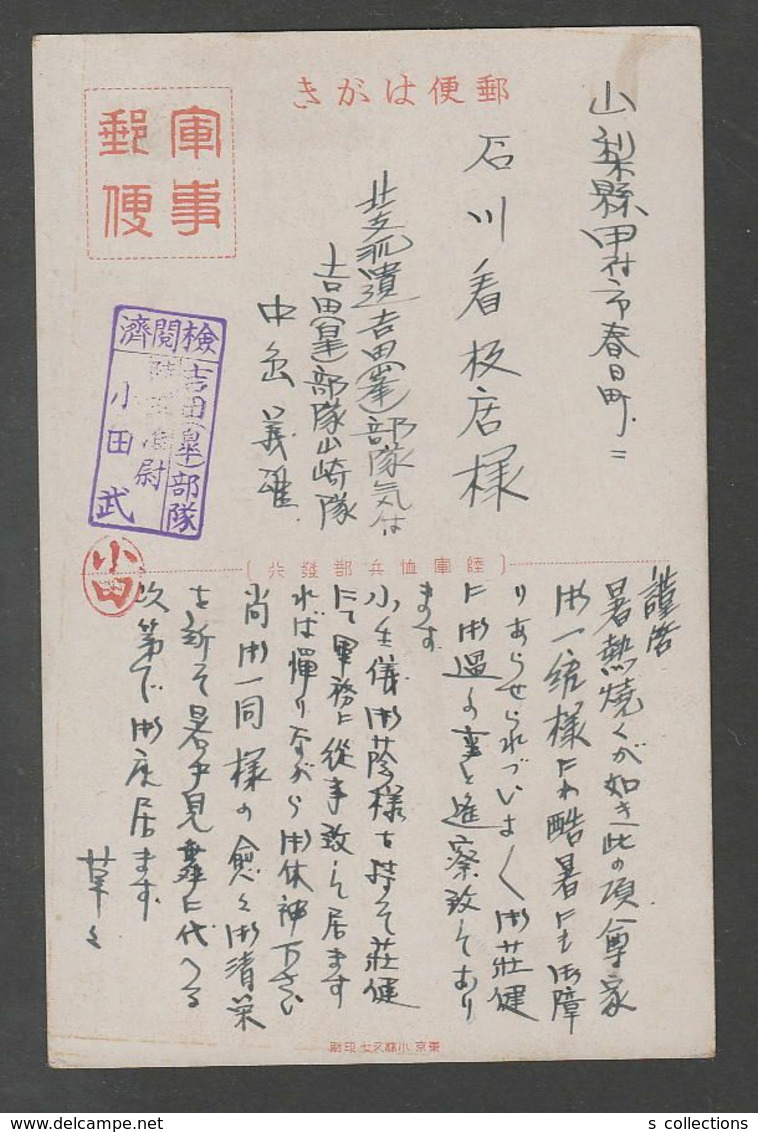 郵便はがき
軍事
郵便
山梨縣甲府市春日町=
石川看板店様
北支派遣吉田(峯)部隊気付
吉田(皐)部隊山崎隊
中島義雄
検閲濟
吉田(皐)部隊
尉
小田武
小田
(陸軍恤兵部發行)
謹啓
暑熱焼くが如き此の項尊家
御一統様にわ酷暑にも御障
りあらせられづいよく御荘健
に御過の事と遙察致してあり
ます
小生儀御蔭様を持て荘健
にて軍務に從事致して居ます
れば憚りながら御休神下さい
尚御一同様の愈々御清栄
を祈て暑中見舞に代へる
次第で御座居ます
草々
東京 小林又七印刷
s collections